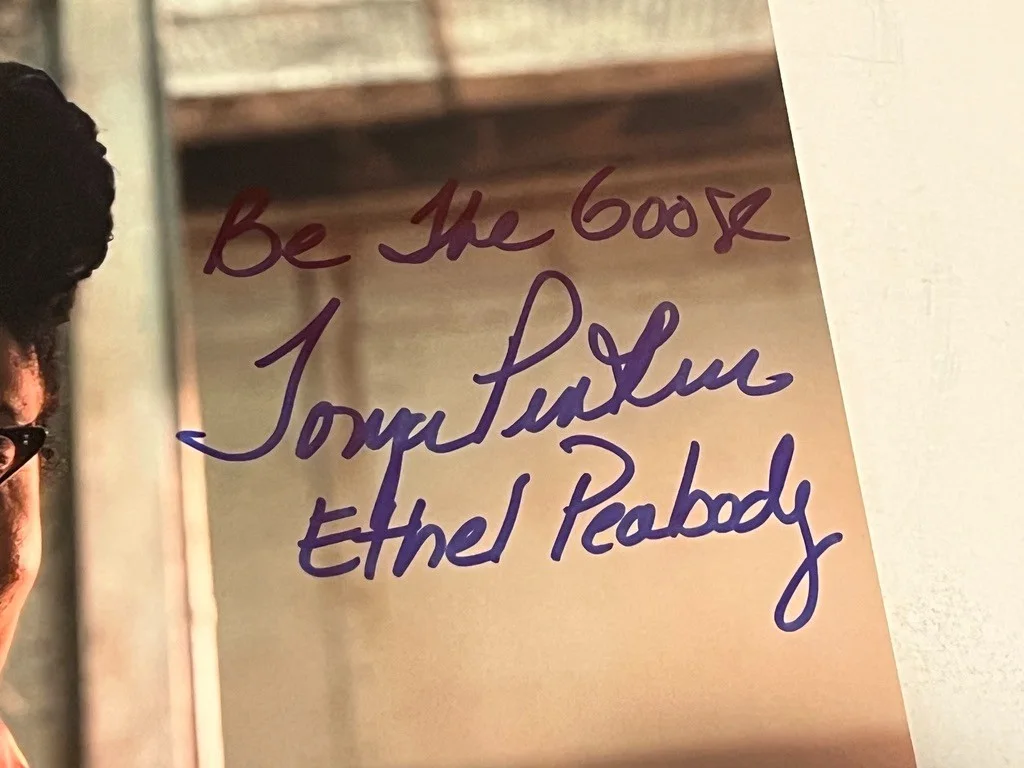 Be The Goose
Tonya Pinkins
Ethel Peabody